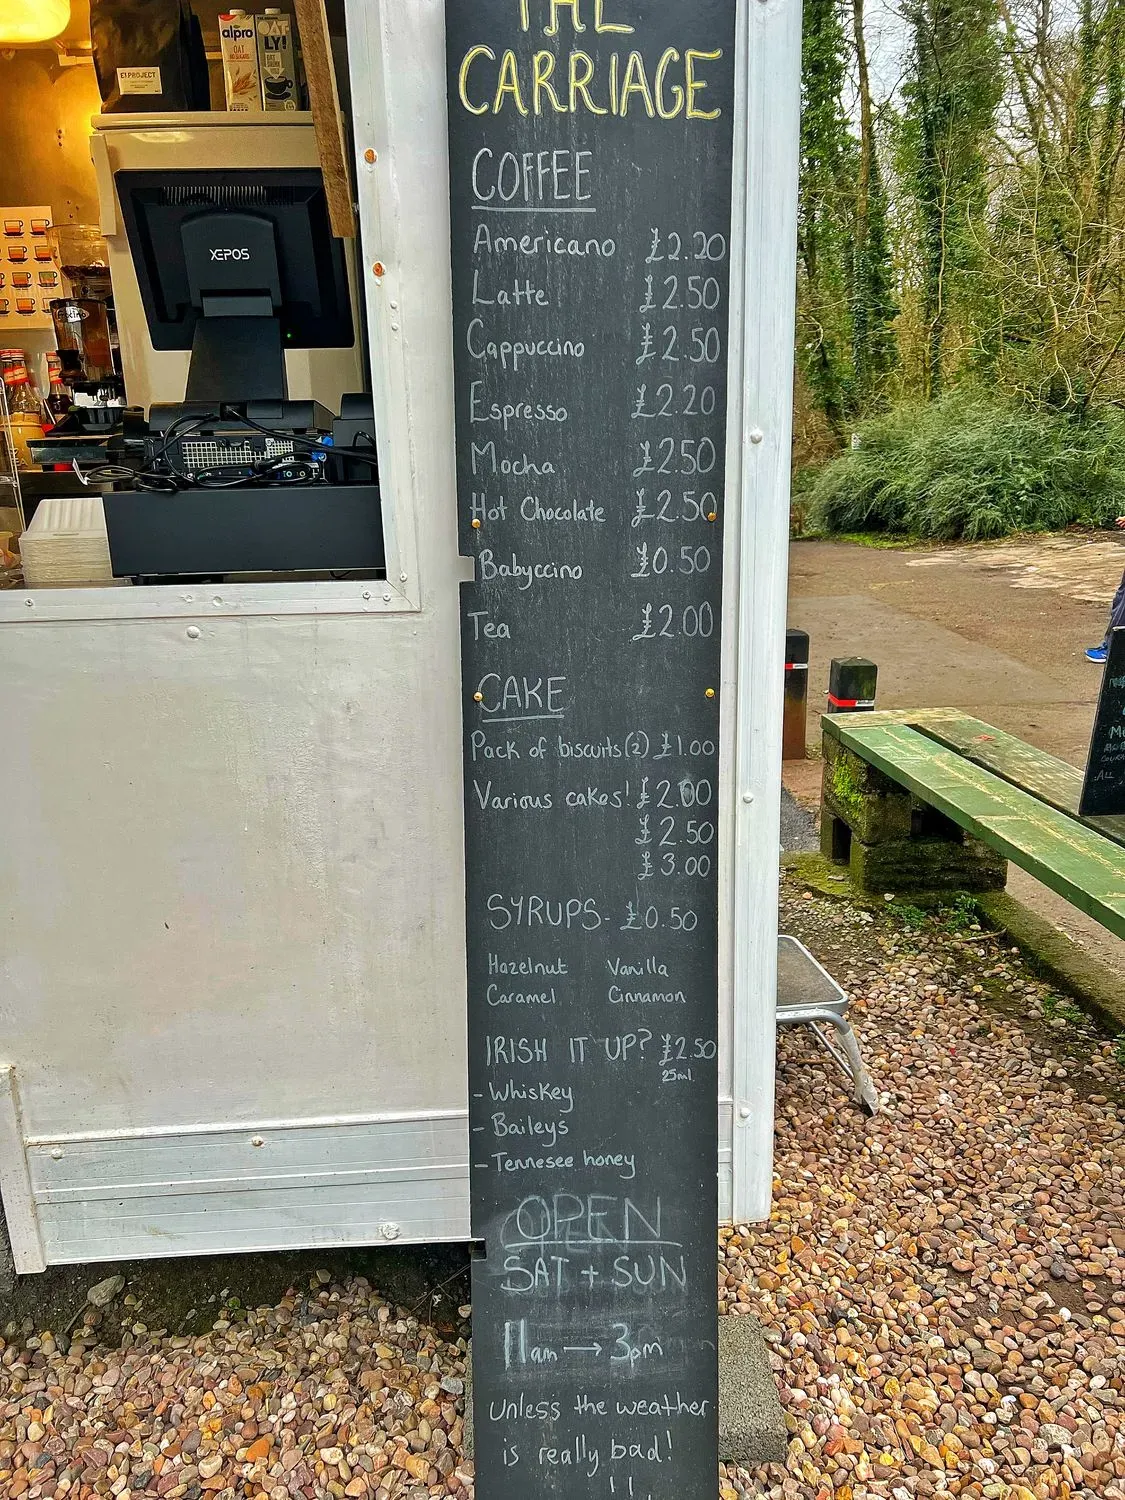 THE
CARRIAGE
COFFEE
Americano £2.20
Latte £2.50
Cappuccino £2.50
Espresso £2.20
Mocha £2.50
Hot Chocolate £2.50
Babyccino £0.50
Tea £2.00
CAKE
Pack of biscuits (2) £1.00
Various cakes! £2.00
£2.50
£3.00
SYRUPS- £0.50
Hazelnut Vanilla
Caramel Cinnamon
IRISH IT UP? £2.50
25ml
- Whiskey
- Baileys
- Tennesee honey
OPEN
SAT + SUN
11am → 3pm
Unless the weather
is really bad!
alpro
OAT
OAT
LY!
E1 PROJECT
XEPOS